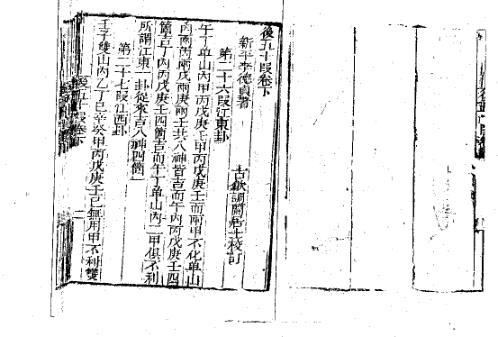 後五十段卷下
新平李德貞著
古歙調閒居士校訂
第二十六段江東卦
午丁單山內甲丙戊庚壬甲丙戊庚壬而兩甲不化單山
內兩丙兩戊兩庚兩壬共八神皆吉而午內丙戊庚壬四
箇吉丁內丙戊庚壬四箇吉而午丁單山內二甲俱不利
所謂江東一卦從來吉八神四箇一
第二十七段江西卦
壬子雙山內乙丁巳辛癸甲丙戊庚壬已無用甲不利雙
後五十段卷下
一